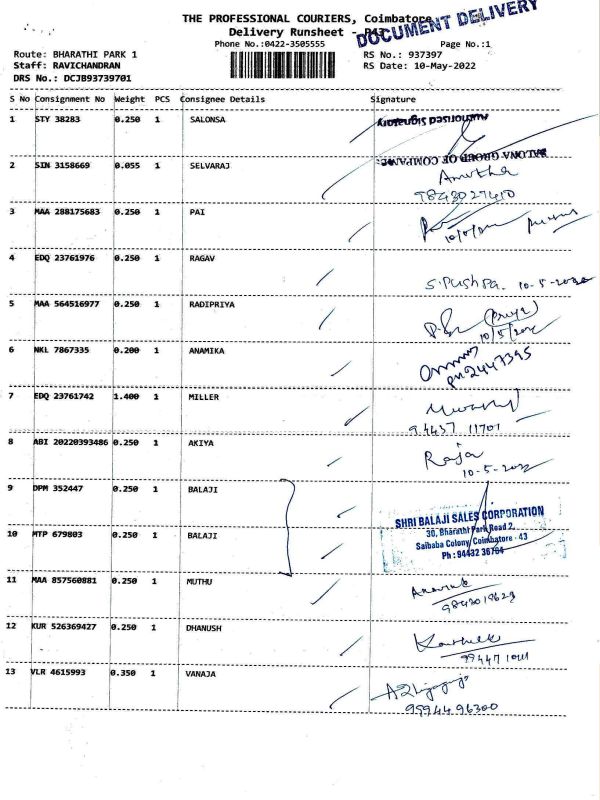 THE PROFESSIONAL COURIERS, Coimbatore
DOCUMENT DELIVERY
Delivery Runsheet -
Phone No.:0422-3505555 Page No.:1
Route: BHARATHI PARK 1 RS No.: 937397
Staff: RAVICHANDRAN RS Date: 10-May-2022
DRS No.: DCJB93739701
S No Consignment No Weight PCS Consignee Details Signature
1 STY 38283 0.250 1 SALONSA Authorised Signatory
SALONA GROUP OF COMPANIES
2 SIN 3158669 0.055 1 SELVARAJ Amutha
9843027410
3 MAA 288175683 0.250 1 PAI
4 EDQ 23761976 0.250 1 RAGAV
S. Pushpa. 10-5-2022
5 MAA 564516977 0.250 1 RADIPRIYA
(Priya)
10/5/2022
6 NKL 7867335 0.200 1 ANAMIKA
PH 2447395
7 EDQ 23761742 1.400 1 MILLER
94437 11701
8 ABI 20220393486 0.250 1 AKIYA Raja
10-5-2022
9 DPM 352447 0.250 1 BALAJI
SHRI BALAJI SALES CORPORATION
30, Bharathi Park Road 2,
10 MTP 679803 0.250 1 BALAJI Saibaba Colony, Coimbatore - 43
Ph : 94432 36704
11 MAA 857560881 0.250 1 MUTHU
12 KUR 526369427 0.250 1 DHANUSH
13 VLR 4615993 0.350 1 VANAJA
9994496300